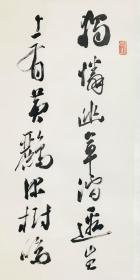 獨憐幽草澗邊生
上有黃鸝深樹鳴